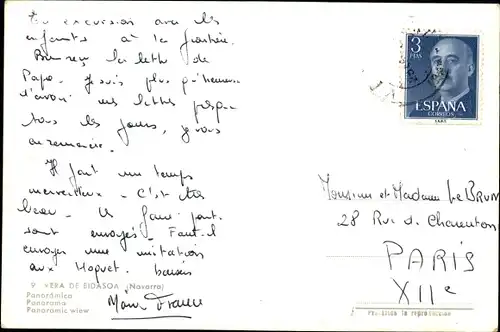 En excursion avec les
enfants à la frontière.
Bien reçu la lettre de
Papa. Je suis plus qu'heureuse
d'avoir des lettres presque
tous les jours, je vous
en remercie.
Il fait un temps
merveilleux - C'est très
beau - Les faire-part
sont envoyés - Faut-il
envoyer une invitation
aux Hoguet. baisers
9 VERA DE BIDASOA (Navarra)
Panorámica
Panorama
Panoramic view
3
PTAS
ESPAÑA
CORREOS
Monsieur et Madame Le BRUN
28 Rue de Charenton
PARIS
XIIe